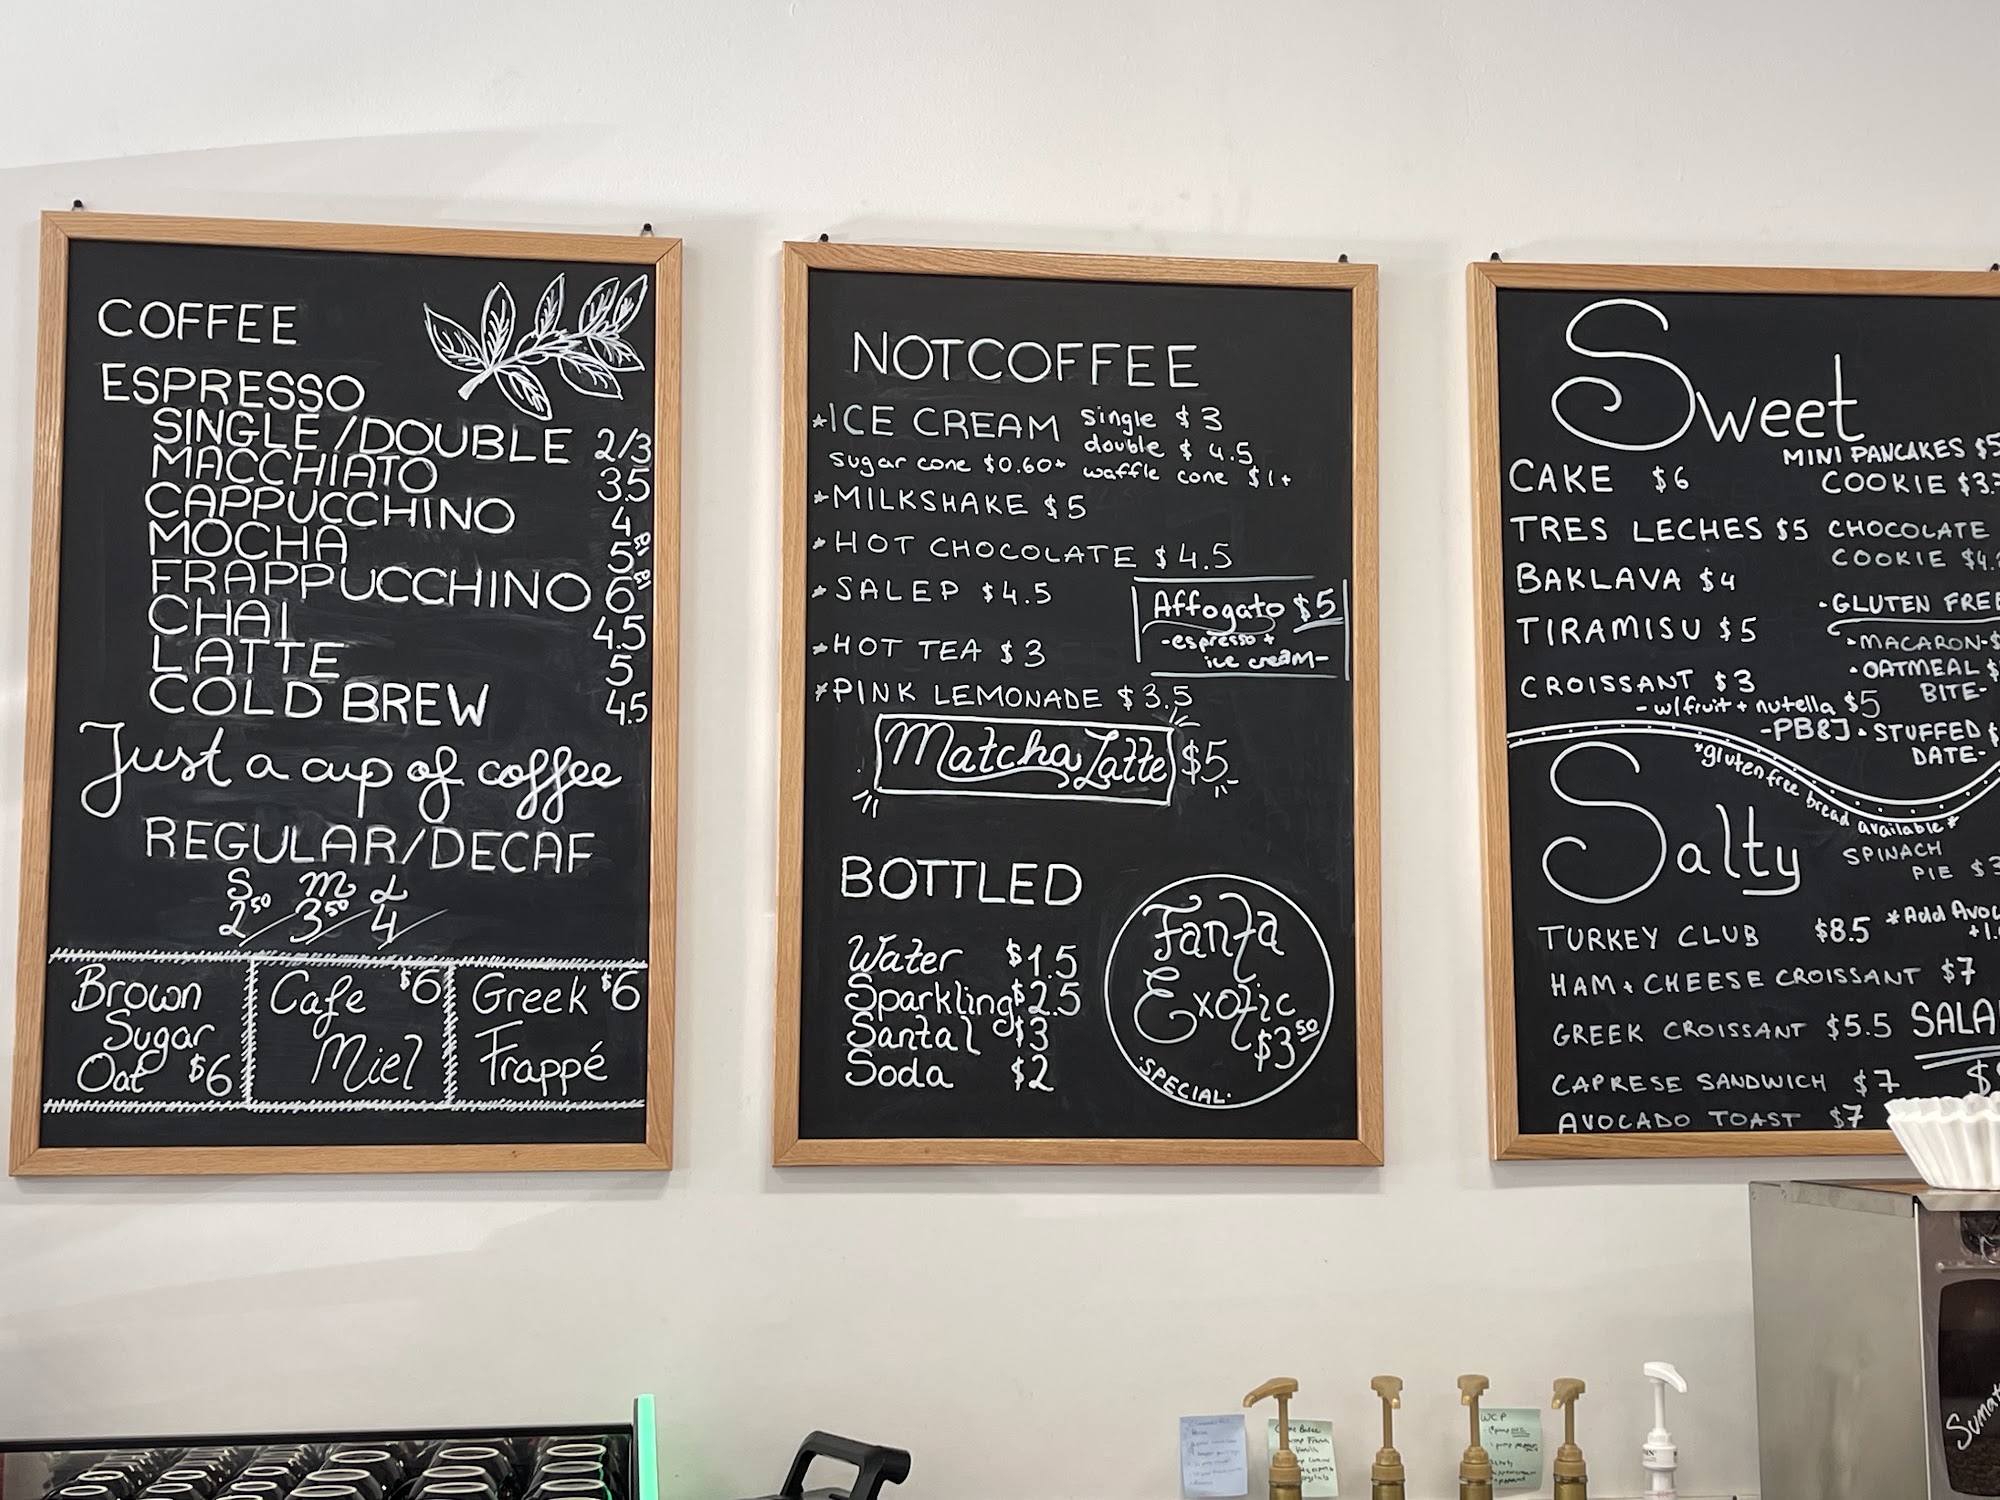 COFFEE
ESPRESSO
SINGLE/DOUBLE 2/3
MACCHIATO 3.5
CAPPUCCHINO 4
MOCHA 5
FRAPPUCCHINO 6
CHAI 4.5
LATTE 5
COLD BREW 4.5
Just a cup of coffee
REGULAR/DECAF
S M L
2.50 / 3.50 / 4
Brown
Sugar
Oat $6
Cafe $6
Miel
Greek $6
Frappé
NOTCOFFEE
*ICE CREAM single $3
double $4.5
sugar cone $0.60+ waffle cone $1+
*MILKSHAKE $5
*HOT CHOCOLATE $4.5
*SALEP $4.5
Affogato $5
-espresso +
ice cream-
*HOT TEA $3
*PINK LEMONADE $3.5
Matcha Latte $5
BOTTLED
Water $1.5
Sparkling $2.5
Santal $3
Soda $2
Fanta
Exotic
$3.50
·SPECIAL·
Sweet
MINI PANCAKES $5
CAKE $6
COOKIE $3.
TRES LECHES $5
CHOCOLATE
COOKIE $4.
BAKLAVA $4
·GLUTEN FREE
TIRAMISU $5
·MACARON-$
·OATMEAL $
BITE-
CROISSANT $3
-w/fruit + nutella $5
-PB&J
·STUFFED $
DATE-
*gluten free bread available*
Salty
SPINACH
PIE $3
TURKEY CLUB $8.5
*Add Avoc
+1.
HAM + CHEESE CROISSANT $7
GREEK CROISSANT $5.5
SALA
CAPRESE SANDWICH $7
AVOCADO TOAST $7
WCP
Sumat